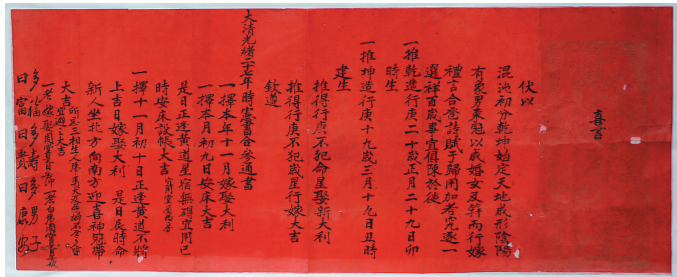 喜書
伏以
混沌初分乾坤始定天地成形陰陽
有象男東冠以成婚女及笄而行嫁
禮言合巹詩賦于歸用加考究逐一
選祥百歲事宜俱陳於後
一推乾造行庚二十歲正月二十九日卯
時生
一推坤造行庚十九歲三月十九日丑時
建生
推得行庚不犯命星娶新大利
推得行庚不犯歲星行嫁大吉
欽遵
大清光緒二十七年時憲書合參通書
一擇本年十一月嫁娶大利
一擇本月初九日安床大吉
是日正逢黃道星宿無碍宜用巳
時安床設帳大吉
一擇十一月初十日正逢黃道不將
上吉日嫁娶大利 是日辰時命
新人坐北方向南方迎喜神冠帶
大吉
多福多壽多男子
曰富曰貴曰康寧